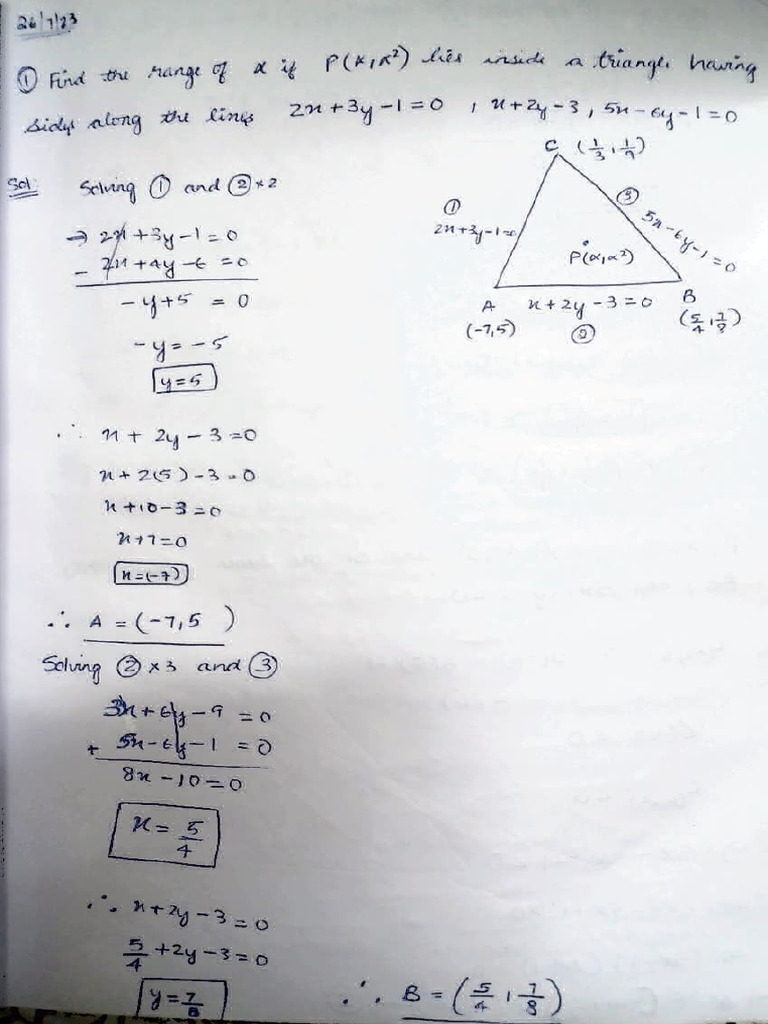 26/7/23
① Find the range of α if P(α,α²) lies inside a triangle having
sides along the lines 2x+3y-1=0 , x+2y-3, 5x-6y-1=0
Sol: Solving ① and ②×2
⇒ 2x+3y-1=0
- 2x+4y-6=0
-y+5 = 0
-y=-5
y=5
∴ x + 2y - 3 =0
x+2(5)-3=0
x+10-3=0
x+7=0
x=(-7)
∴ A = (-7,5 )
Solving ②×3 and ③
3x+6y-9 = 0
+ 5x-6y-1 = 0
8x-10=0
x= 5/4
∴ x+2y-3=0
5/4+2y-3=0
y=7/8
∴ B = (5/4 , 7/8)
C (1/3, 1/9)
①
2x+3y-1=0
③
5x-6y-1=0
P(α,α²)
A
x+2y-3=0
B
(-7,5)
②
(5/4, 7/8)